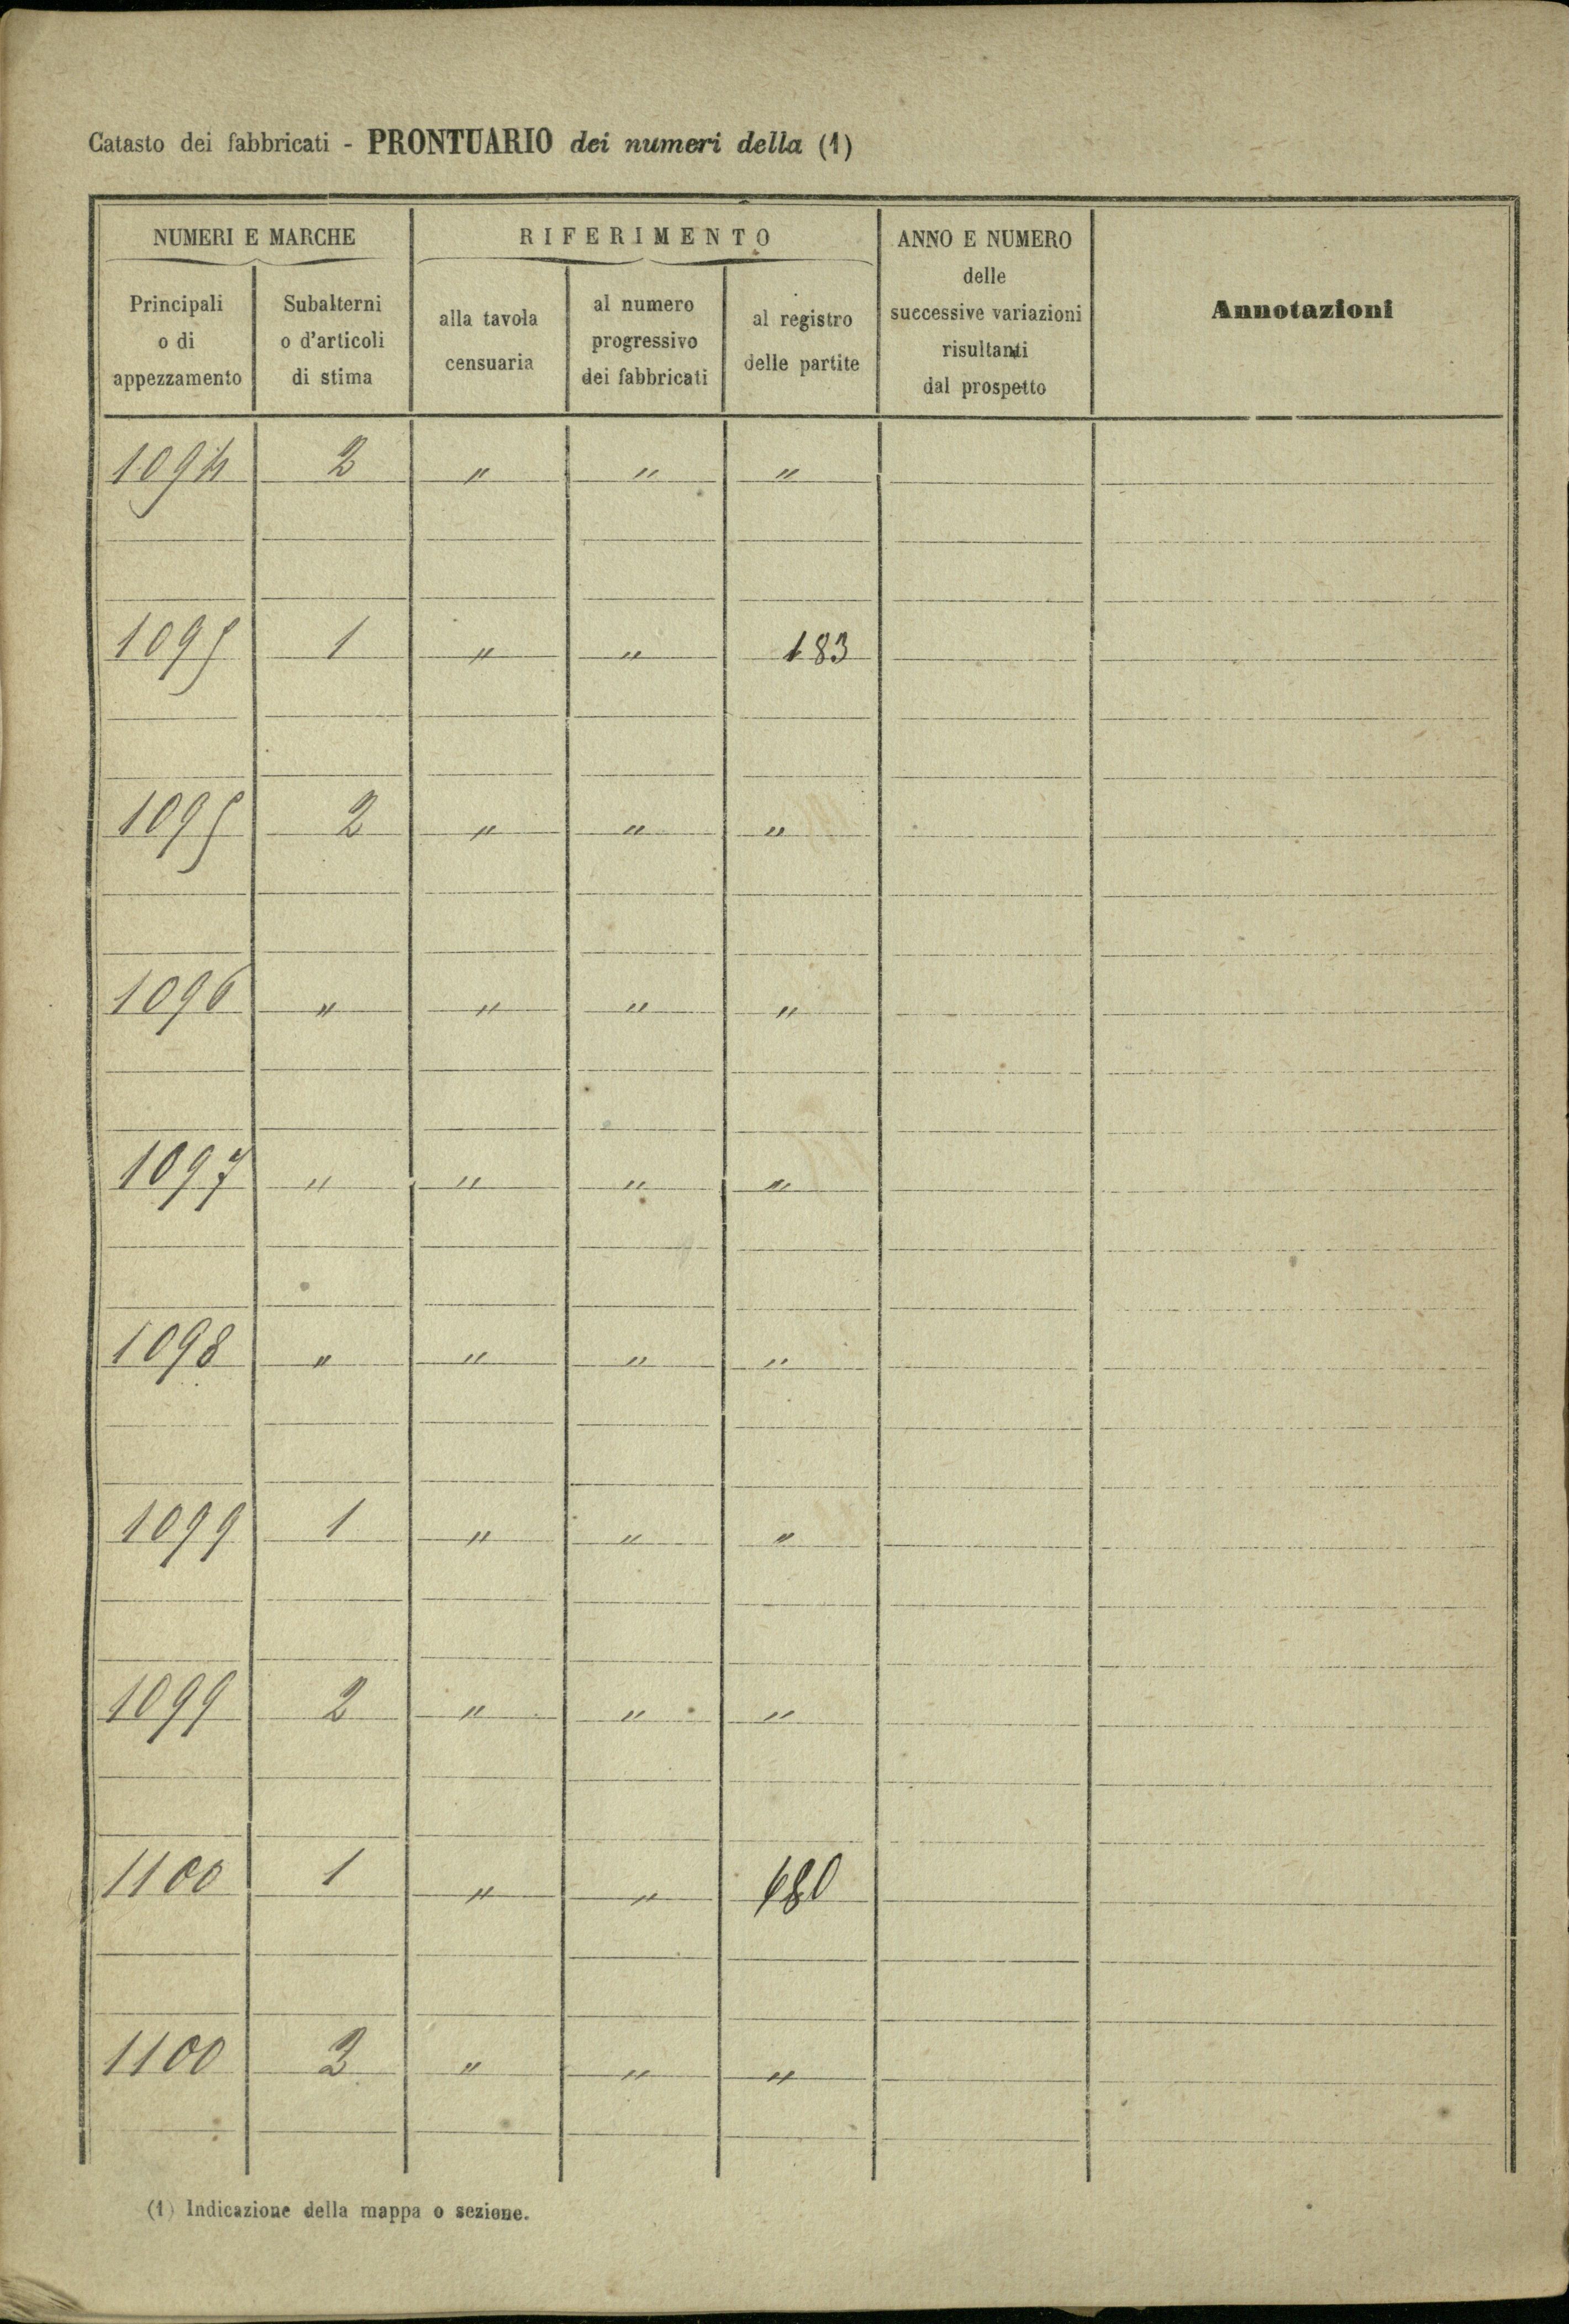 Catasto dei fabbricati - PRONTUARIO dei numeri della (1)
NUMERI E MARCHE
Principali o di appezzamento
Subalterni o d'articoli di stima
RIFERIMENTO
alla tavola censuaria
al numero progressivo dei fabbricati
al registro delle partite
ANNO E NUMERO delle successive variazioni risultanti dal prospetto
Annotazioni
1094 2 " " "
1095 1 " " 183
1095 2 " " "
1096 " " " "
1097 " " " "
1098 " " " "
1099 1 " " "
1099 2 " " "
1100 1 " " 680
1100 2 " " "
(1) Indicazione della mappa o sezione.